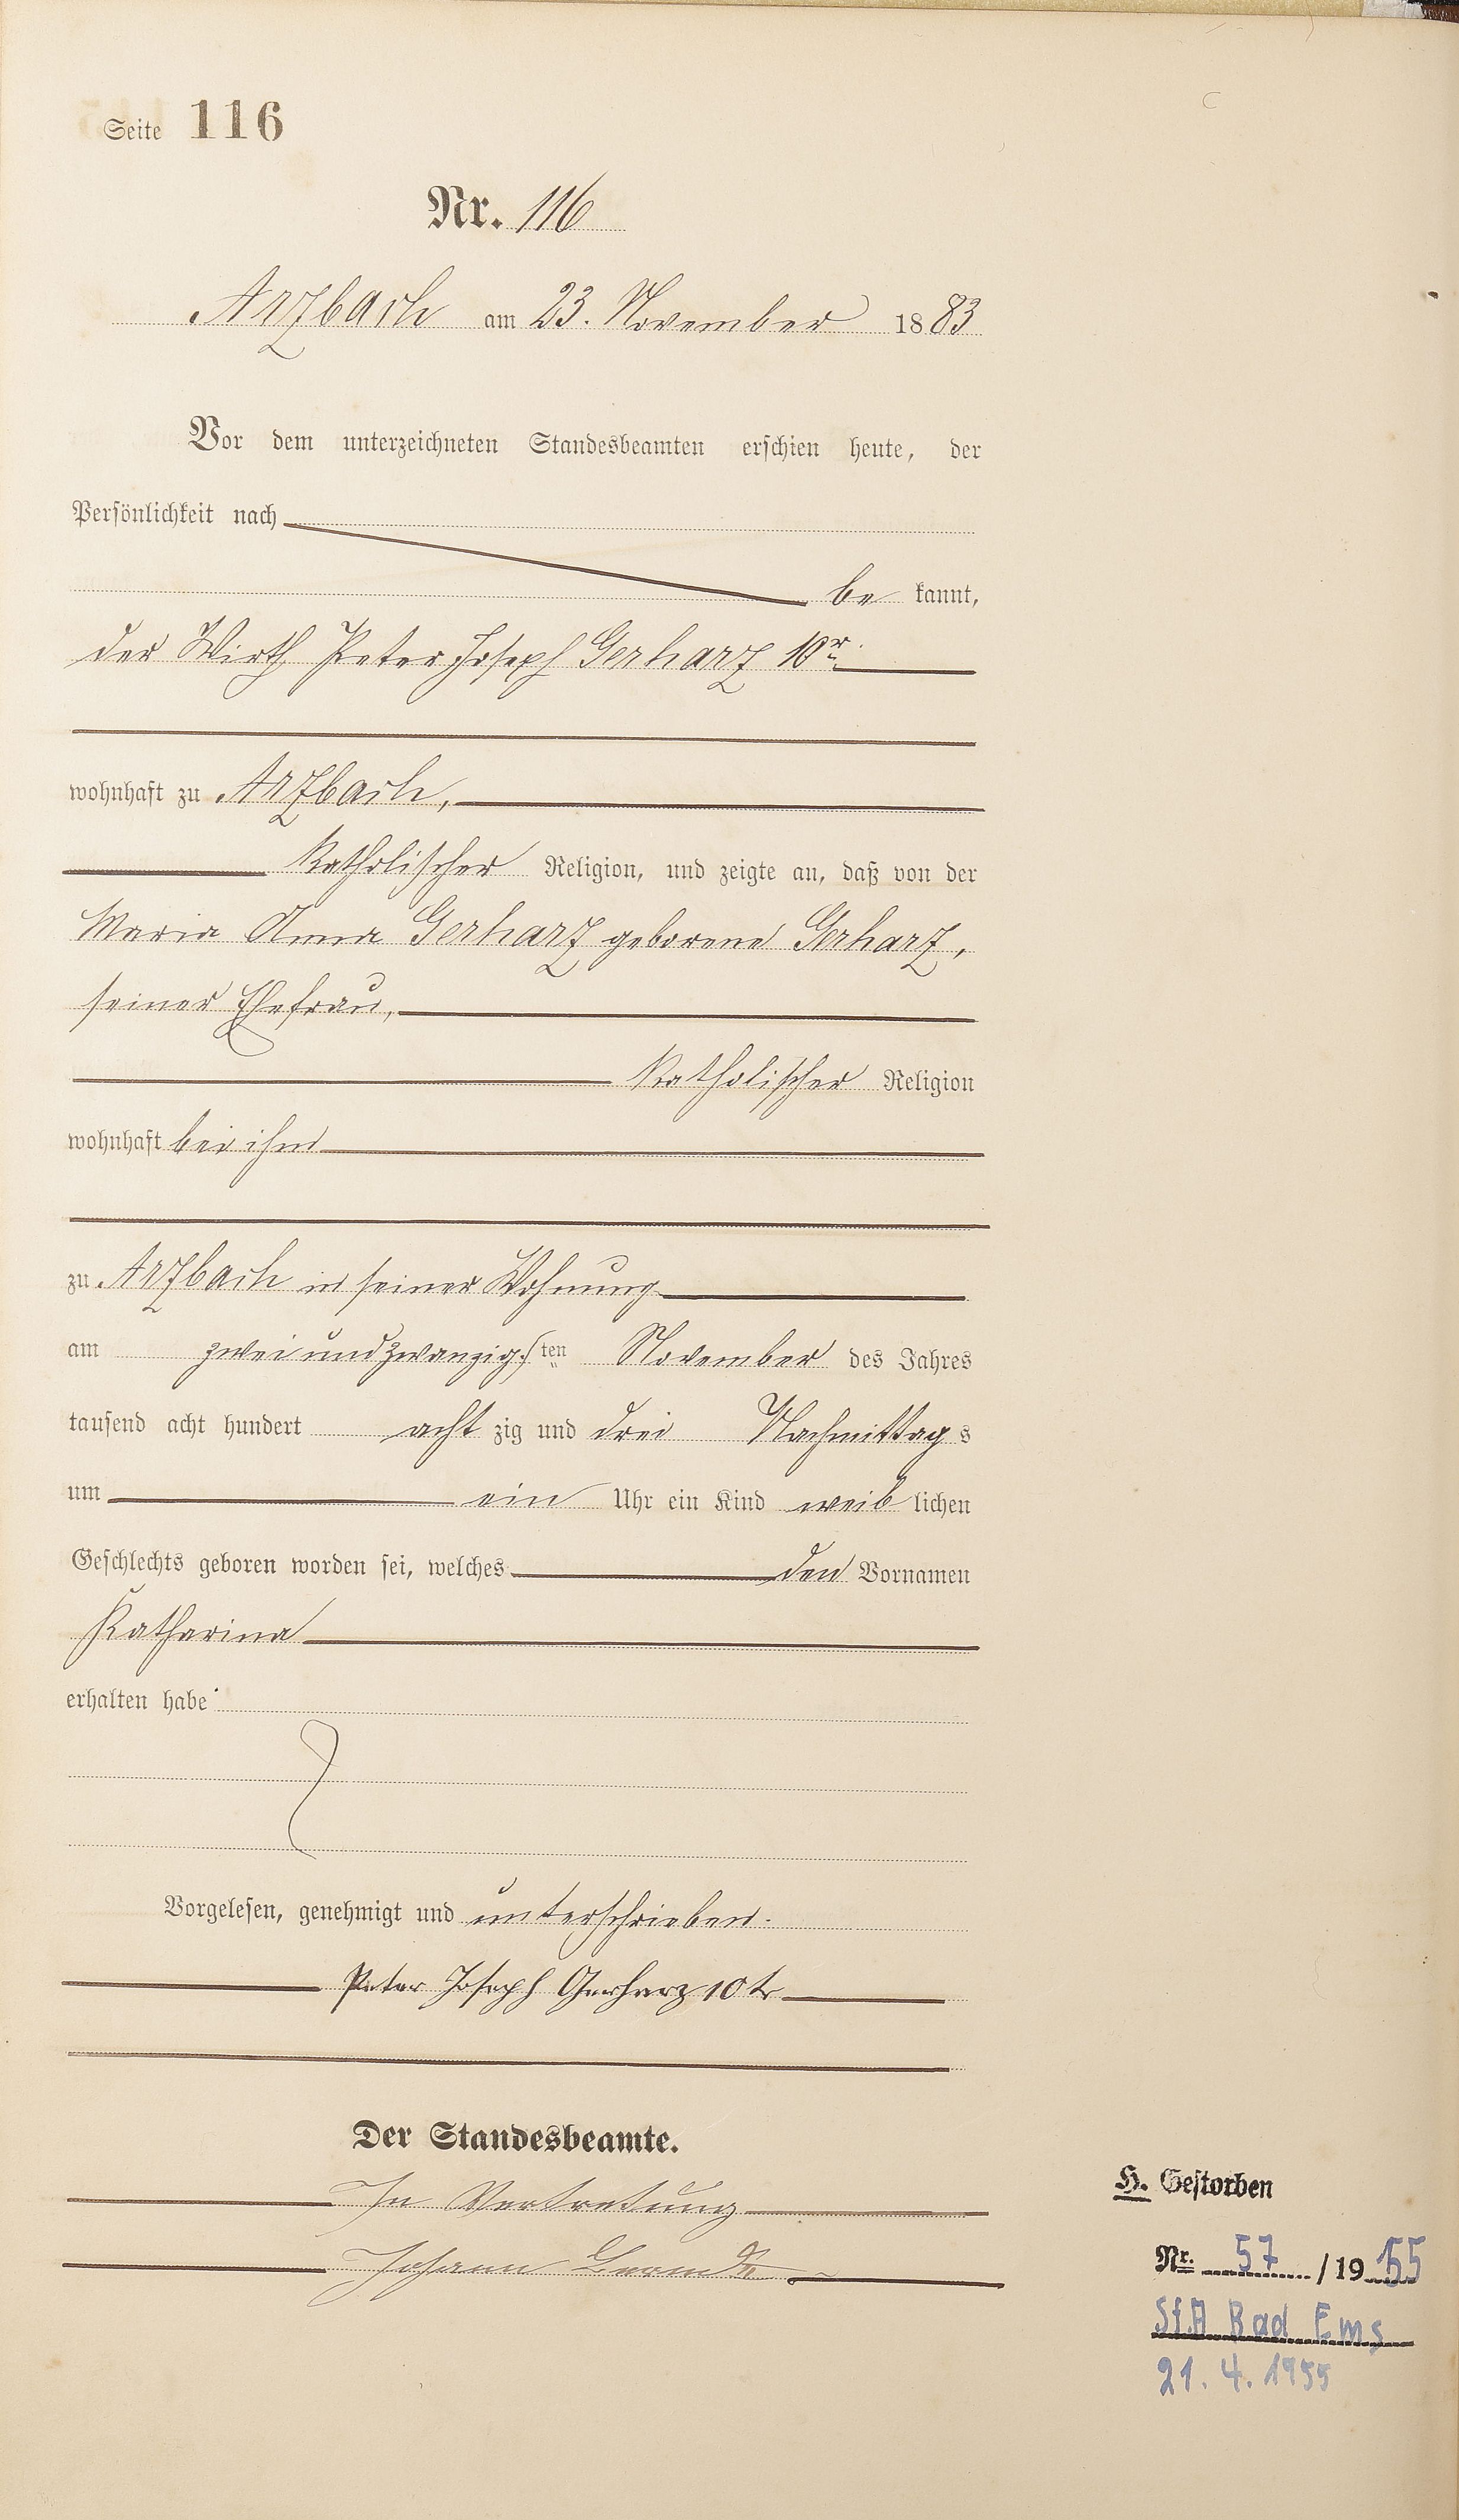 Seite 116
Nr. 116
Arzbach am 23. November 1883
Vor dem unterzeichneten Standesbeamten erschien heute, der
Persönlichkeit nach
be kannt,
der Wirth Peter Joseph Gerharz 10r
wohnhaft zu Arzbach,
katholischer Religion, und zeigte an, daß von der
Maria Anna Gerharz geborene Gerharz,
seiner Ehefrau,
katholischer Religion
wohnhaft bei ihm
zu Arzbach in seiner Wohnung
am zwei und zwanzigsten November des Jahres
tausend acht hundert acht zig und drei Nachmittags
um ein Uhr ein Kind weiblichen
Geschlechts geboren worden sei, welches den Vornamen
Katharina
erhalten habe
Vorgelesen, genehmigt und unterschrieben.
Peter Joseph Gerharz 10tr
Der Standesbeamte.
In Vertretung
Johann
H. Gestorben
Nr. 57 / 1955
St.A Bad Ems
21. 4. 1955